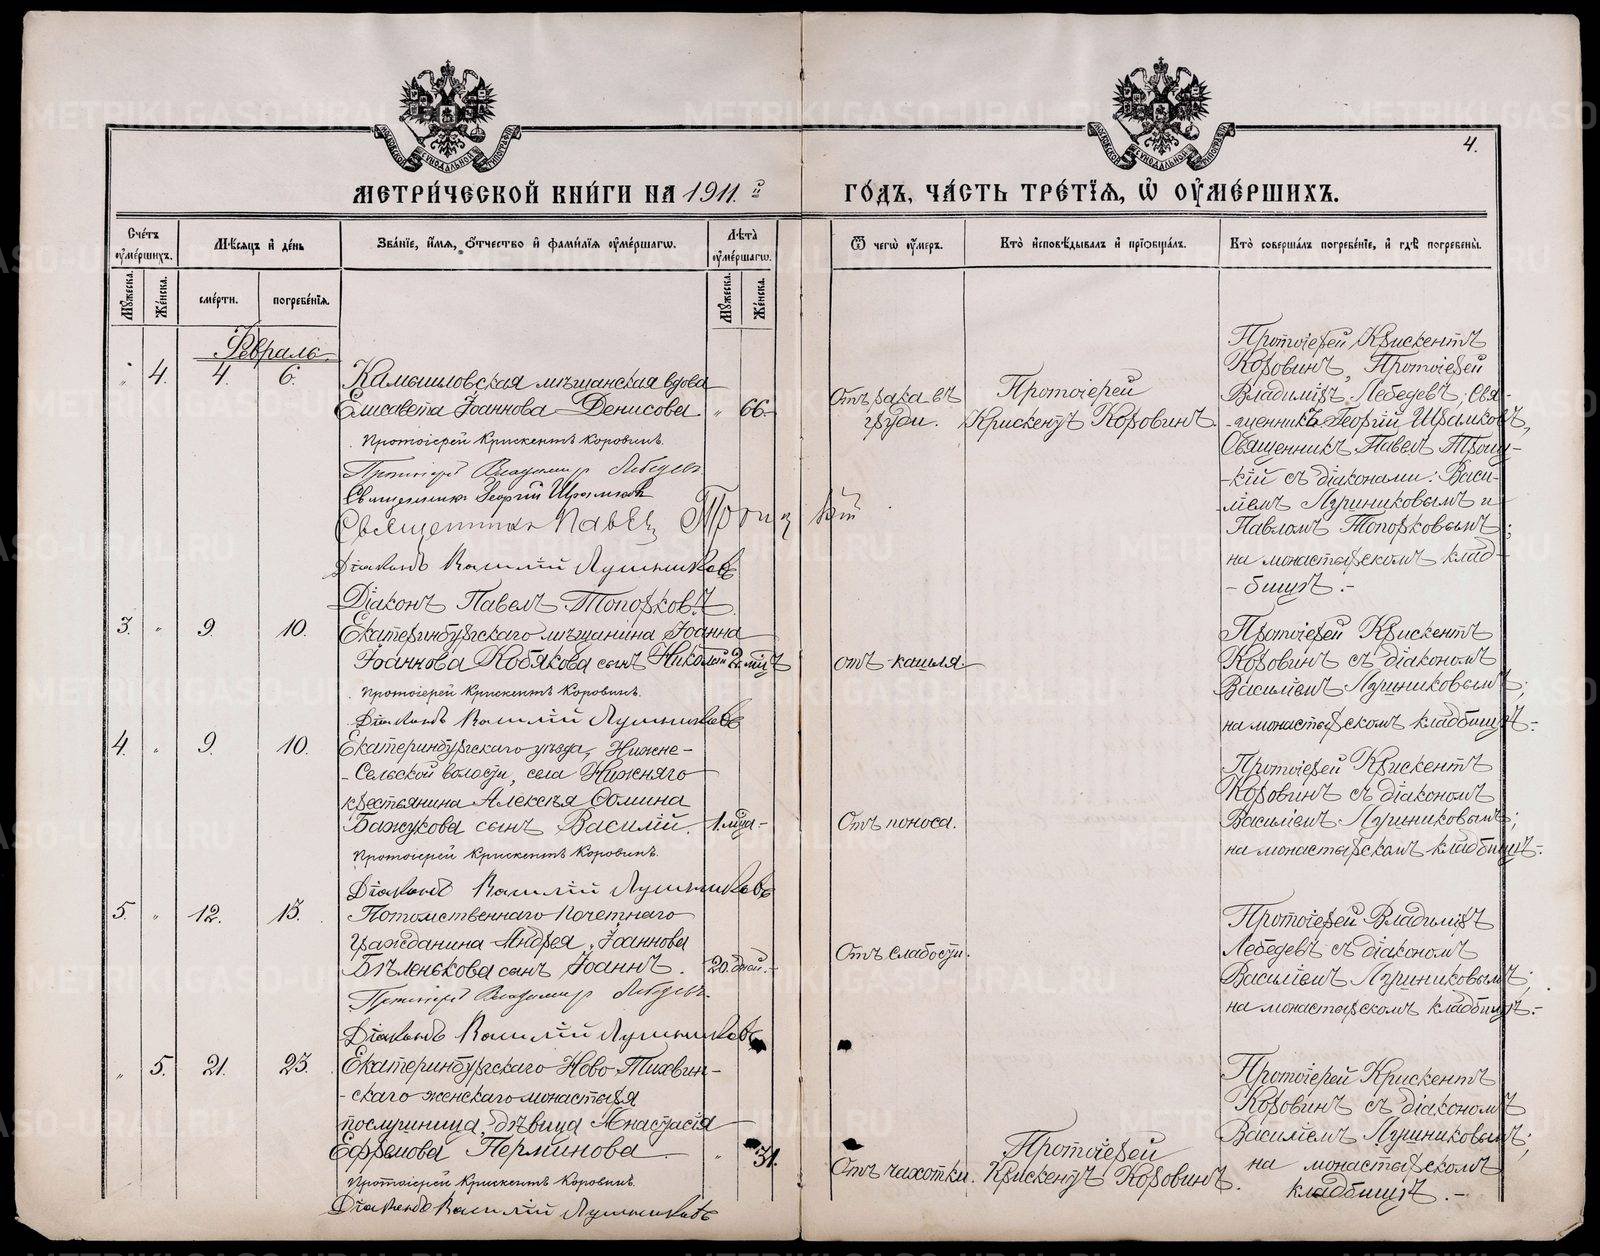 4.
МЕТРИ́ЧЕСКОЙ КНИ́ГИ НА 1911.й ГО́ДЪ, ЧА́СТЬ ТРЕ́ТЇѦ, Ѡ҆ ОУ҆МЕ́РШИХЪ.
Сче́тъ оу҆ме́ршихъ.
Мѣсяцъ и҆ де́нь
Зва́нїе, и҆́мѧ, ѻ҆́тчество и҆ фами́лїѧ оу҆ме́ршагѡ.
Лѣ́та оу҆ме́ршагѡ.
Ѿ чегѡ̀ оу҆́меръ.
Кто̀ и҆сповѣ́дывалъ и҆ прїѡбща́лъ.
Кто̀ соверша́лъ погребе́нїе, и҆ гдѣ̀ погребены̀.
Мꙋ́жеска.
Же́нска.
сме́рти.
погребе́нїѧ.
Мꙋ́жеска.
Же́нска.
Февраль.
„ 4. 4. 6.
Камышловская мѣщанская вдова
Елисавета Іоаннова Денисова. „ 66.
Протоіерей Крискентъ Коровинъ.
Протоіерей Владимир Лебедевъ
Священникъ Георгій Шрамковъ
Священникъ Павел Троицкій
Діаконъ Василій Лушниковъ
Діаконъ Павелъ Топорковъ
Отъ рака въ
груди.
Протоіерей
Крискентъ Коровинъ
Протоіерей Крискентъ
Коровинъ, Протоіерей
Владиміръ Лебедевъ, свя-
-щенникъ Георгій Шрамковъ,
Священникъ Павелъ Троиц-
-кій съ діаконами: Васи-
-ліемъ Лушниковымъ и
Павломъ Топорковымъ;
на монастырскомъ клад-
-бищѣ.-
3. „ 9. 10.
Екатеринбургскаго мѣщанина Іоанна
Іоаннова Кобякова сынъ Николай 2 мѣц.
Протоіерей Крискентъ Коровинъ.
Діаконъ Василій Лушниковъ
отъ кашля.
Протоіерей Крискентъ
Коровинъ съ діакономъ
Василіемъ Лушниковымъ;
на монастырскомъ кладбищѣ.-
4. „ 9. 10.
Екатеринбургскаго уѣзда, Нижне-
-Сельской волости, села Нижняго
крестьянина Алексѣя Ѳомина
Бажукова сынъ Василій. 1. мѣца.-
Протоіерей Крискентъ Коровинъ.
Діаконъ Василій Лушниковъ
Отъ поноса.
Протоіерей Крискентъ
Коровинъ съ діакономъ
Василіемъ Лушниковымъ;
на монастырскомъ кладбищѣ.-
5. „ 12. 13.
Потомственнаго Почетнаго
гражданина Андрея Іоаннова
Бѣленькова сынъ Іоаннъ. 20. дней.-
Протоіерей Владимир Лебедевъ.
Діаконъ Василій Лушниковъ
Отъ слабости.
Протоіерей Владиміръ
Лебедевъ съ діакономъ
Василіемъ Лушниковымъ;
на монастырскомъ кладбищѣ.-
„ 5. 21. 23.
Екатеринбургскаго Ново-Тихвин-
-скаго женскаго монастыря
послушница, дѣвица Анастасія
Ефремова Перминова. „ 31.
Протоіерей Крискентъ Коровинъ.
Діаконъ Василій Лушниковъ
Отъ чахотки.
Протоіерей
Крискентъ Коровинъ.
Протоіерей Крискентъ
Коровинъ съ діакономъ
Василіемъ Лушниковымъ;
на монастырскомъ
кладбищѣ.-
METRIKI.GASO-URAL.RU